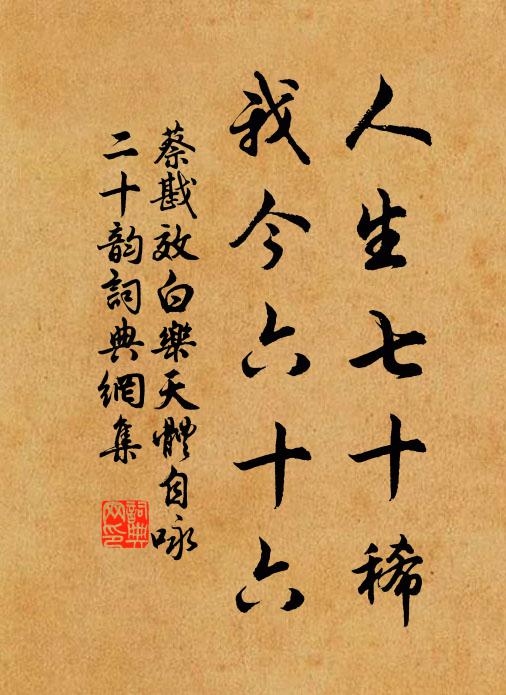 人生七十稀
我今六十六
蔡戡效白樂天體自咏
二十韵詞典網集
詞典
网印